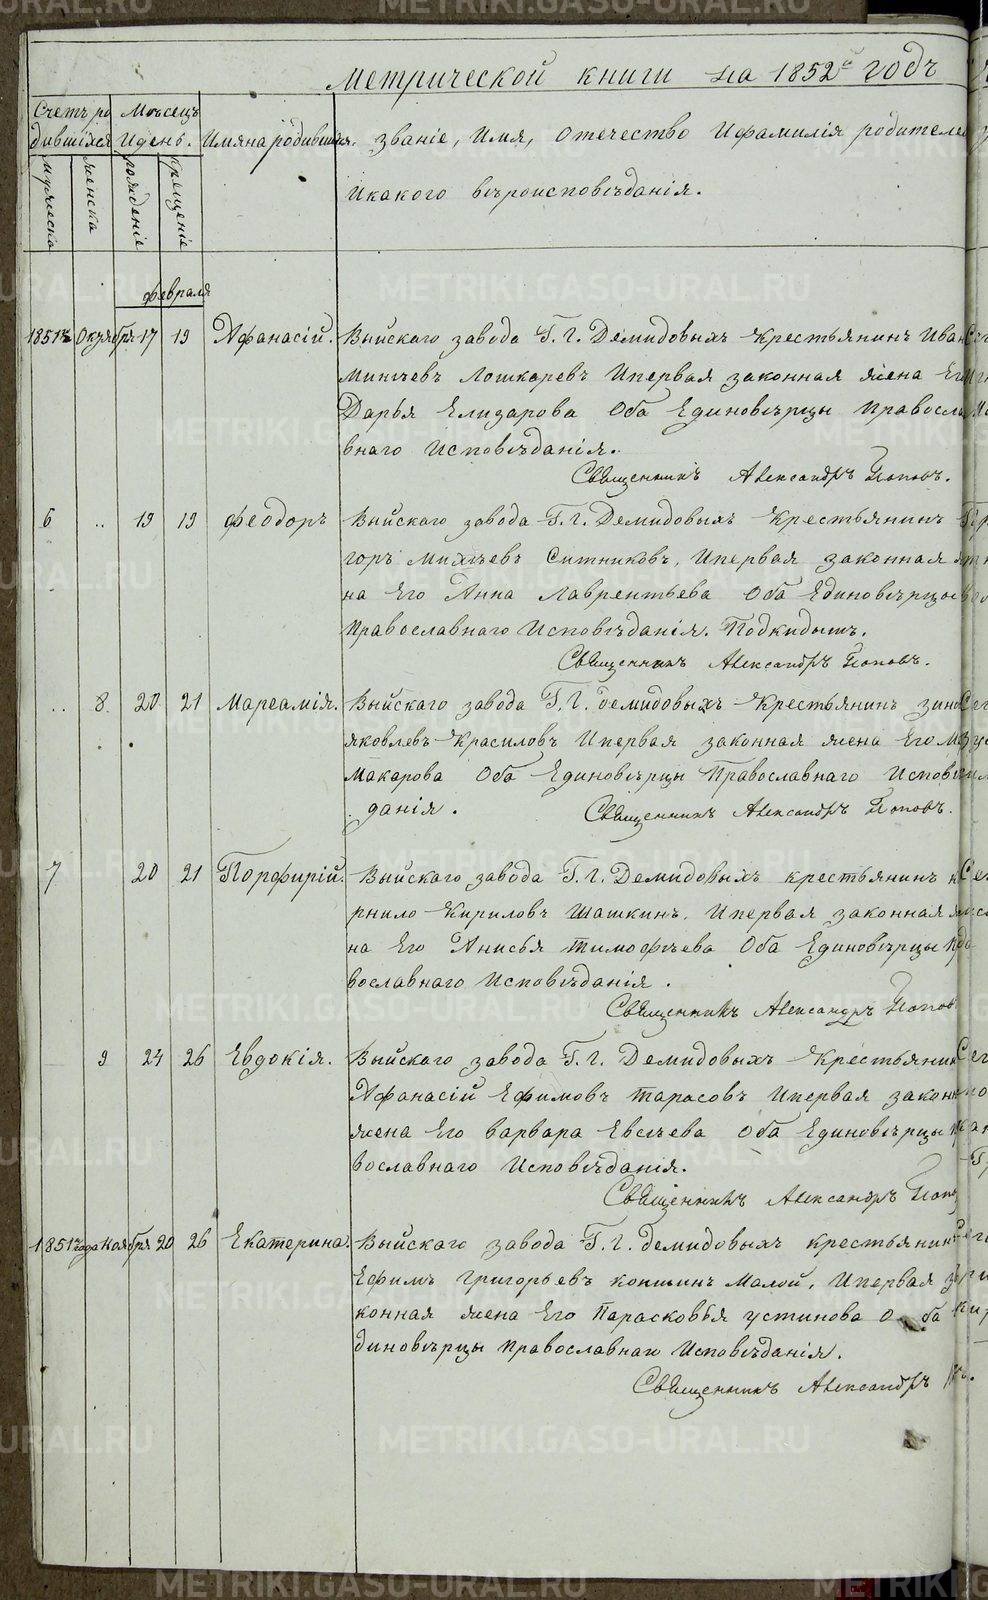 Метрической книги на 1852й годъ
Счетъ ро
дившихся
Мѣсецъ
и день.
Имяна родившихся.
званіе, имя, отечество и фамилія родителе
и какого вѣроисповѣданія.
мужеска
женска
рожденіе
крещеніе
февраля
1851го Октября 17 19 Афанасій. Выйскаго завода Г. г. Демидовыхъ крестьянинъ Иван
Минѣевъ Лошкаревъ и первая законная жена Ег
Дарья Елизарова оба Единовѣрцы Правосла
внаго исповѣданія.
Священникъ Александръ Поповъ.
6 .. 19 19 Феодоръ Выйскаго завода Г. г. Демидовыхъ крестьянинъ
горъ Михѣевъ Ситниковъ, и первая законная
на Его Анна Лаврентьева оба Единовѣрцы
Православнаго исповѣданія. Подкидышъ.
Священникъ Александръ Поповъ.
.. 8. 20 21 Мареамія. Выйскаго завода Г. г. Демидовыхъ крестьянинъ зино
яковлевъ Красиловъ и первая законная жена Его
Макарова оба Единовѣрцы Православнаго исповѣ
данія.
Священникъ Александръ Поповъ.
7 20 21 Порфирій. Выйскаго завода Г. г. Демидовыхъ крестьянинъ
рнило Кириловъ Шашкинъ, и первая законная
на Его Анисья Тимофѣева оба Единовѣрцы пра
вославнаго исповѣданія.
Священникъ Александръ Попов
9 24 26 Евдокія. Выйскаго завода Г. г. Демидовыхъ крестьянин
Афанасій Ефимовъ Тарасовъ и первая законн
жена Его варвара Евсѣева оба Единовѣрцы
вославнаго исповѣданія.
Священникъ Александръ Попо
1851го года Ноября 20 26 Екатерина. Выйскаго завода Г. г. Демидовыхъ крестьянинъ
Ефимъ григорьевъ копшинъ Малой, и первая за
конная жена Его Парасковья устинова о ба
диновѣрцы православнаго исповѣданія.
Священникъ Александръ
METRIKI.GASO-URAL.RU